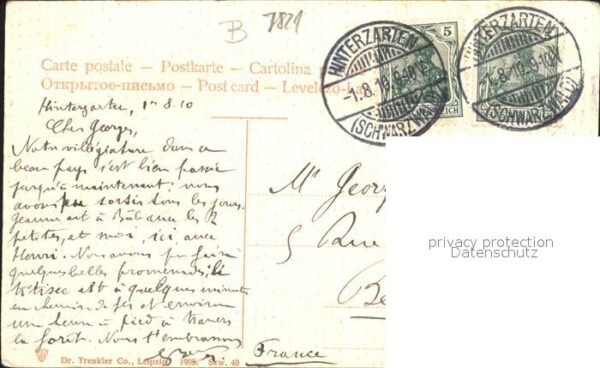 B 7821
Carte postale — Postkarte — Cartolina
Открытое-письмо — Post card — Levelezö-La
HINTERZARTEN
-1.8.10.
(SCHWARZWALD)
5
REICH
HINTERZARTEN
-1.8.10.9-10V.
(SCHWARZWALD)
Hinterzarten, 1er 8.10
Cher Georges,
Notre villégiature dans ce
beau pays s'est bien passée
jusqu'à maintenant; nous
avons pu sortir tous les jours.
Jeanne est à avec les 2
petites, et moi, ici avec
Henri. Nous avons pu faire
quelques belles promenades; le
Titisee est à quelques minutes
en chemin de fer et environ
une heure à pied à travers
la forêt. Nous t'embrassons
Mr Georg
5 Rue
Be
France
privacy protection
Datenschutz
Dr. Trenkler Co., Leipzig. 1905. Szw. 40